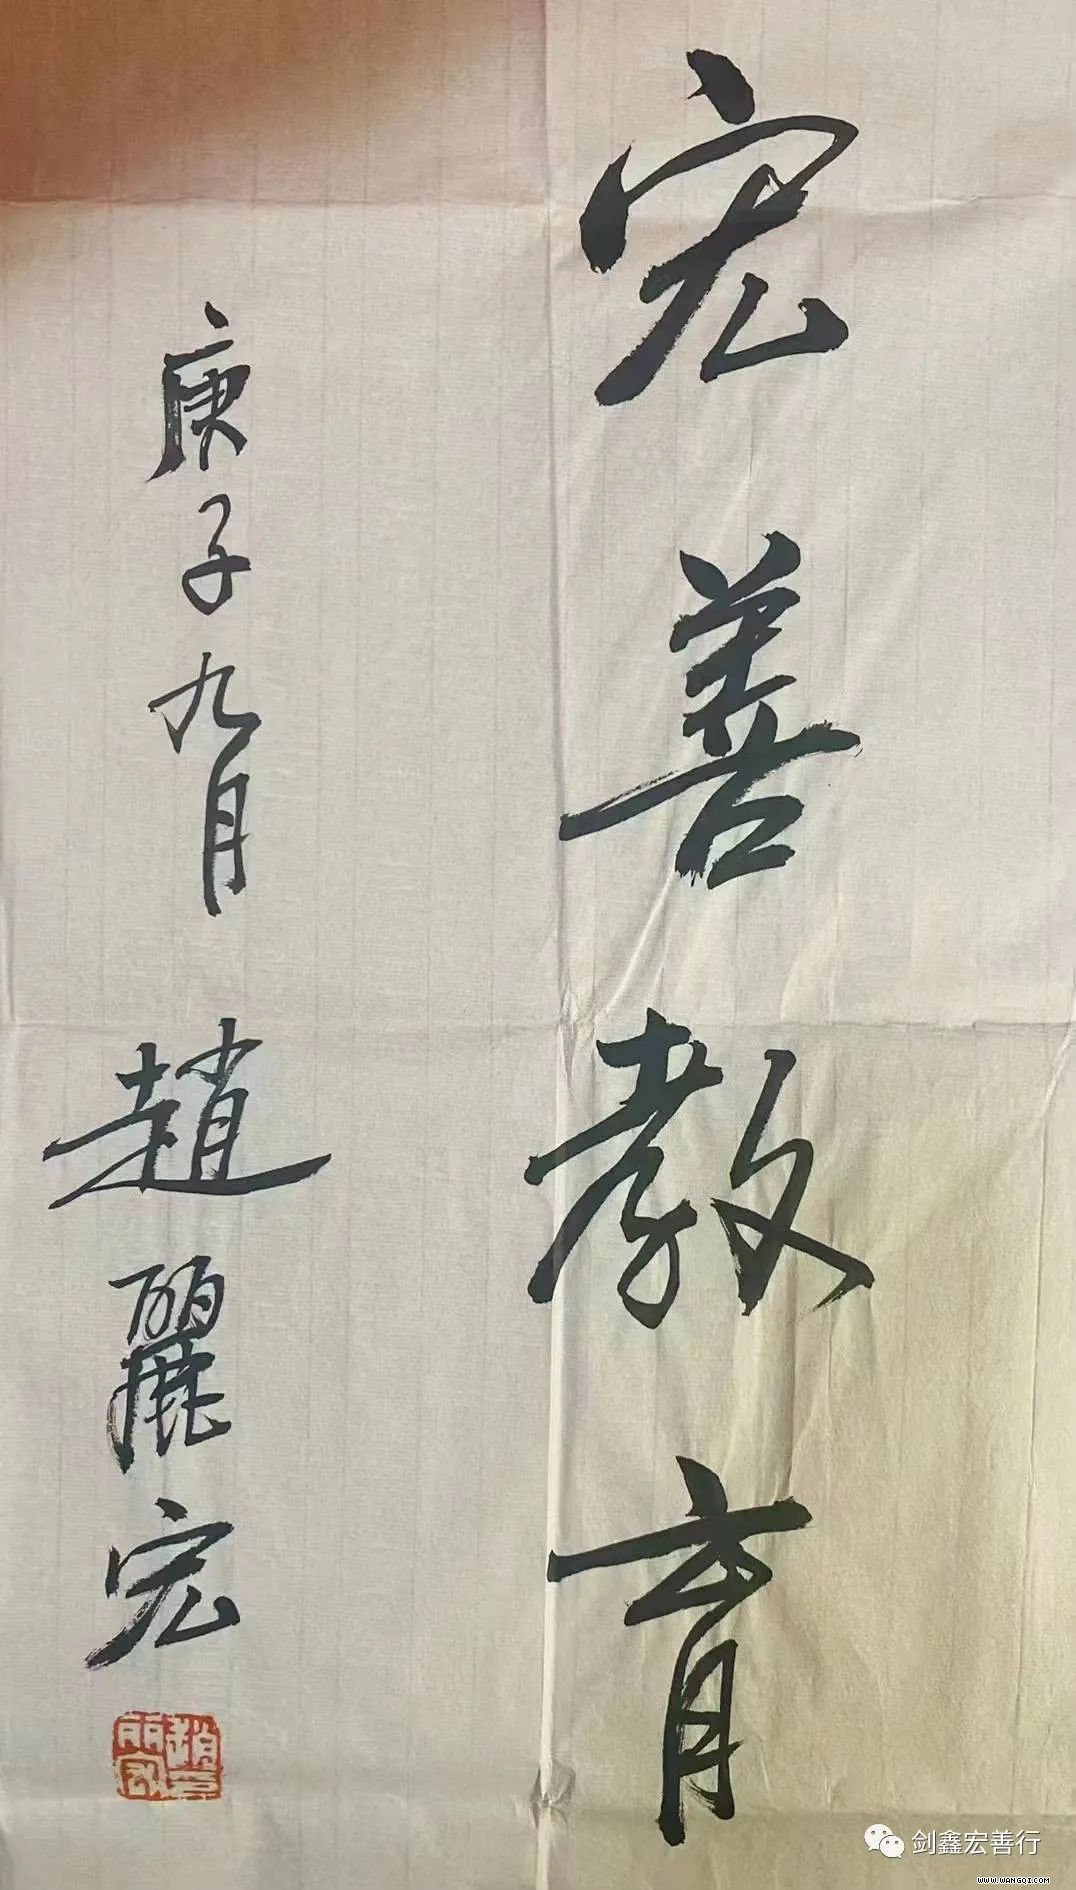 宏善教育
庚子九月 趙麗宏
趙印麗宏
剑鑫宏善行
WWW.WANGQI.COM